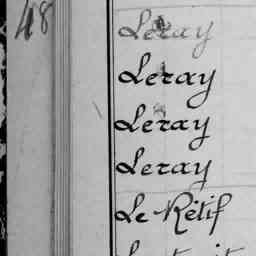 48
Leray
Leray
Leray
Leray
Le Rétif